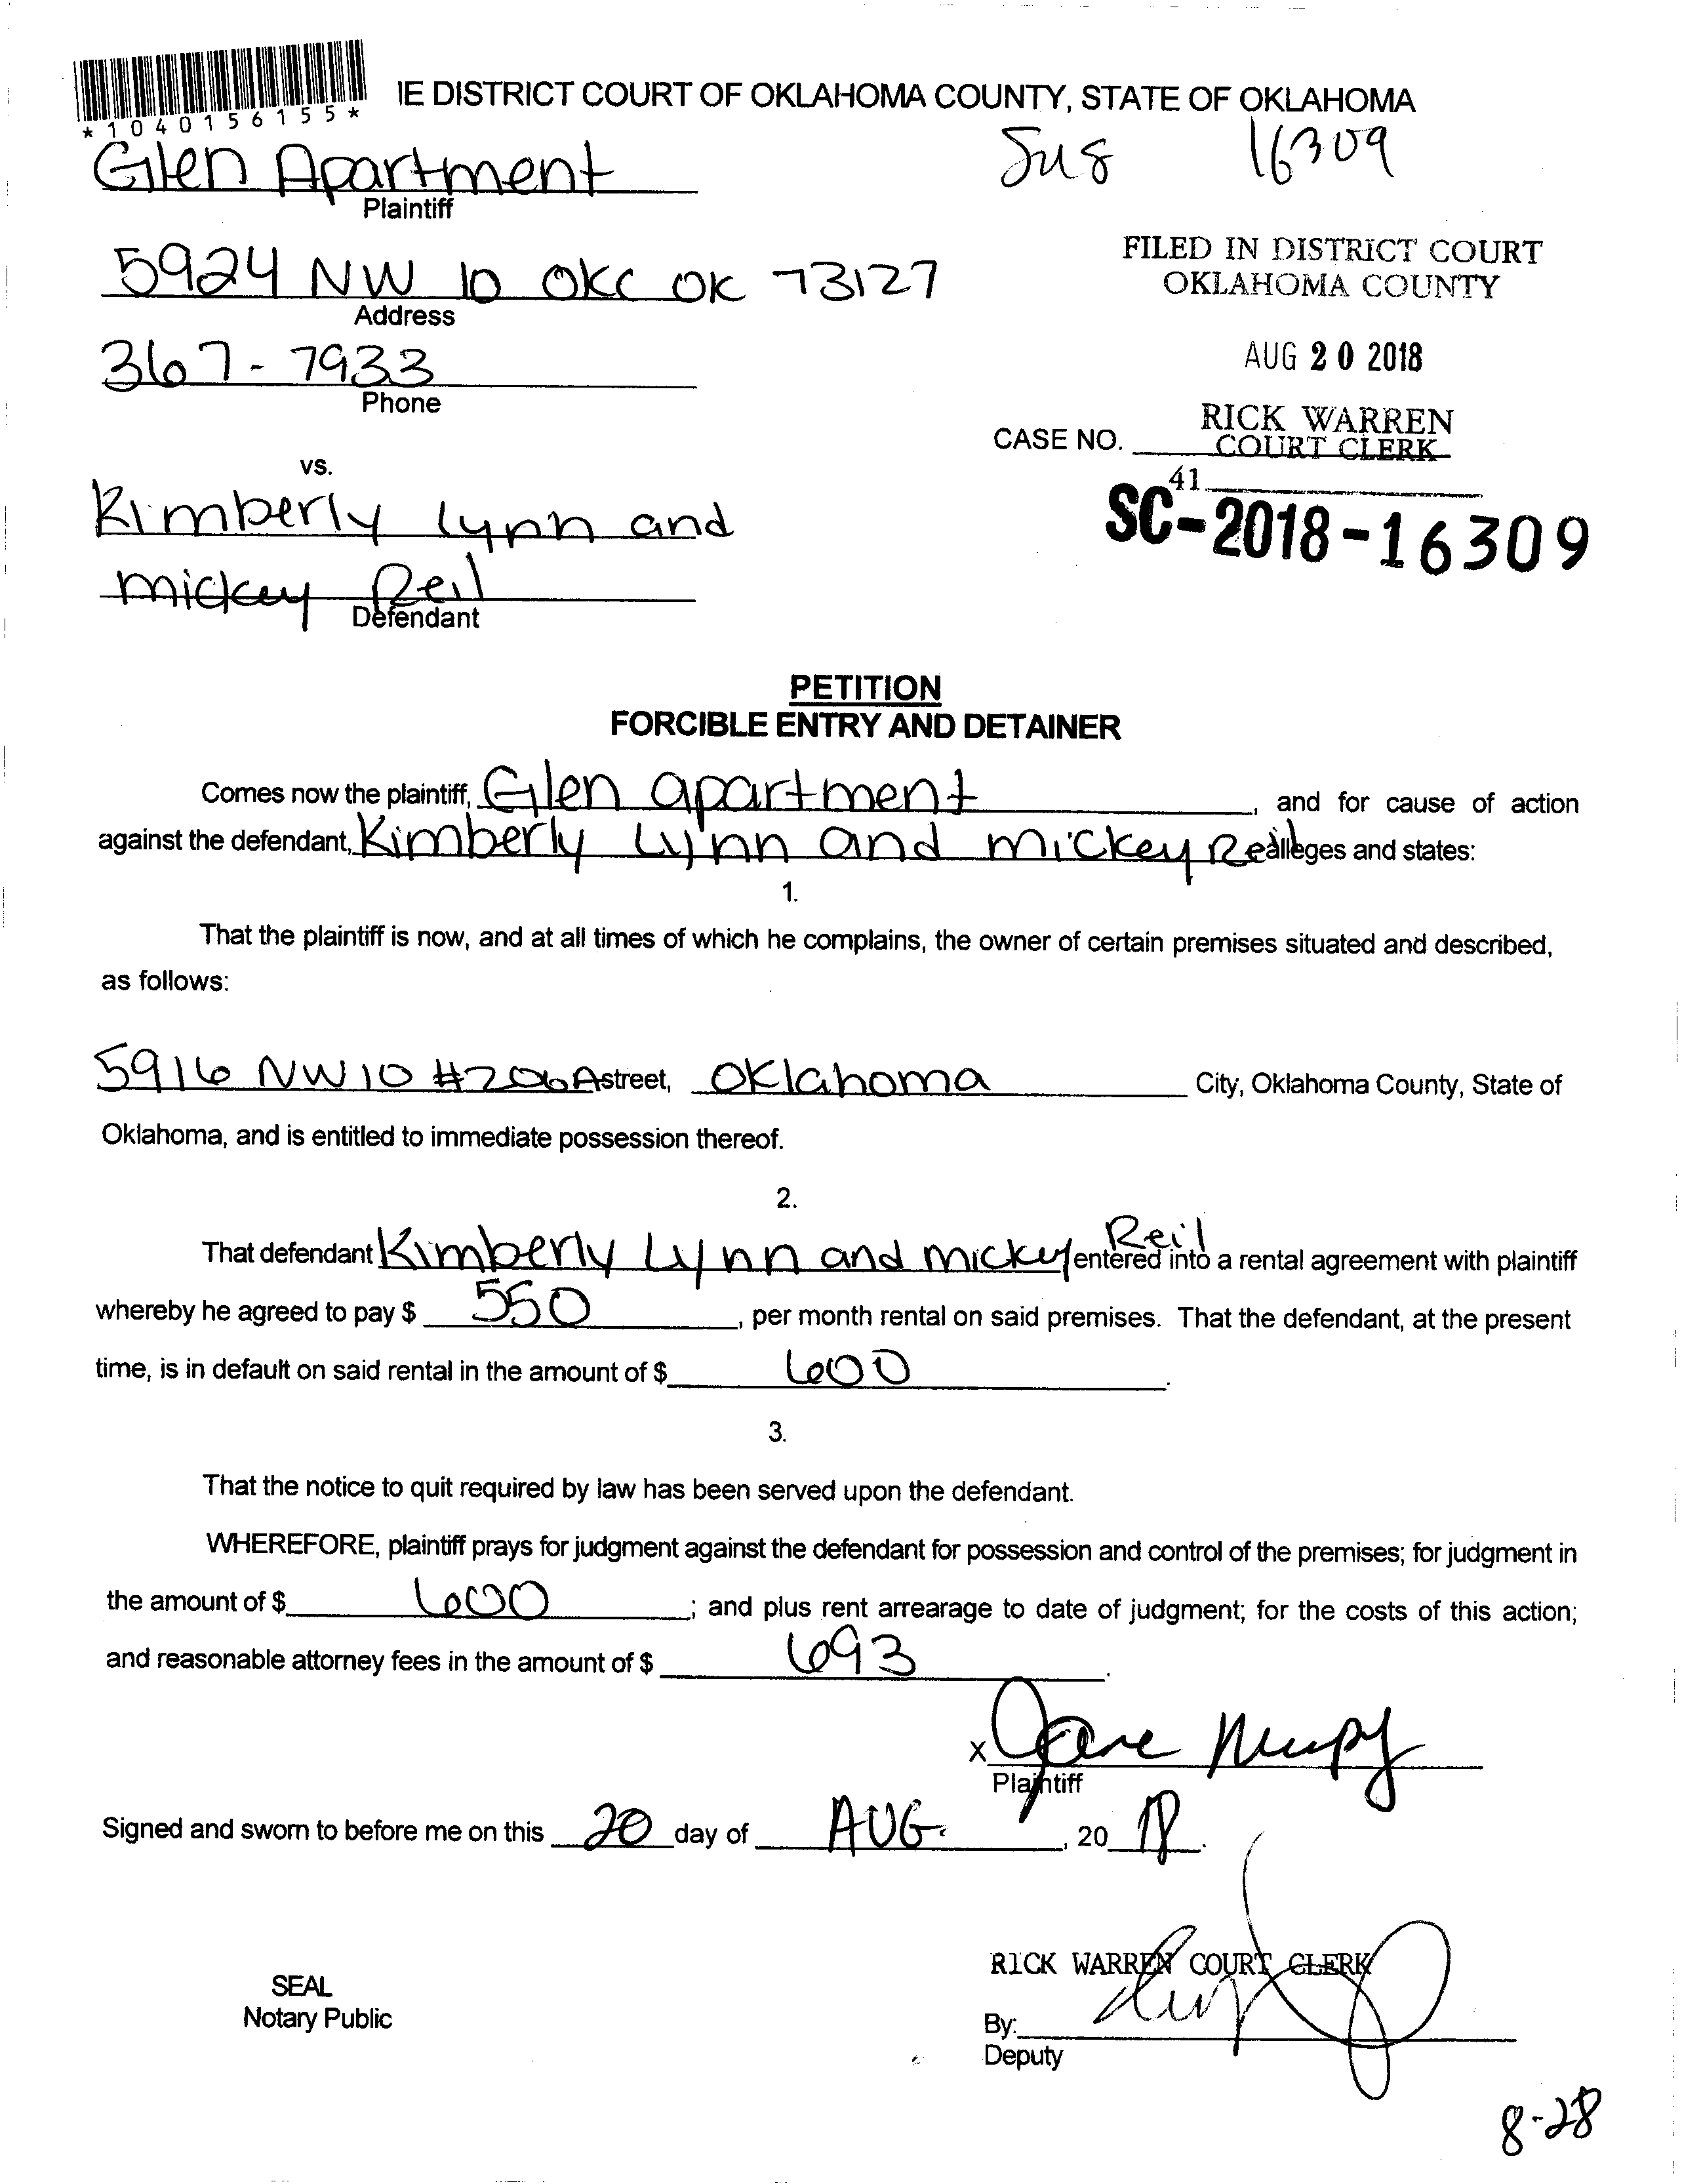 *1040156155*
IE DISTRICT COURT OF OKLAHOMA COUNTY, STATE OF OKLAHOMA
16309
Glen Apartment
Plaintiff
5924 NW 10 OKC OK 73127
Address
FILED IN DISTRICT COURT
OKLAHOMA COUNTY
367-7933
Phone
AUG 20 2018
RICK WARREN
CASE NO. COURT CLERK
vs.
41
SC-2018-16309
Kimberly Lynn and
mickey Reil
Defendant
PETITION
FORCIBLE ENTRY AND DETAINER
Comes now the plaintiff, Glen apartment, and for cause of action
against the defendant, Kimberly Lynn and mickey Reil alleges and states:
1.
That the plaintiff is now, and at all times of which he complains, the owner of certain premises situated and described,
as follows:
5916 NW 10 #206A street, Oklahoma City, Oklahoma County, State of
Oklahoma, and is entitled to immediate possession thereof.
2.
That defendant Kimberly Lynn and micky Reil entered into a rental agreement with plaintiff
whereby he agreed to pay $ 550, per month rental on said premises. That the defendant, at the present
time, is in default on said rental in the amount of $ 600.
3.
That the notice to quit required by law has been served upon the defendant.
WHEREFORE, plaintiff prays for judgment against the defendant for possession and control of the premises; for judgment in
the amount of $ 600; and plus rent arrearage to date of judgment; for the costs of this action;
and reasonable attorney fees in the amount of $ 693.
x
Plaintiff
Signed and sworn to before me on this 20 day of AUG., 20 18.
RICK WARREN COURT CLERK
SEAL
Notary Public
By:
Deputy
8-28